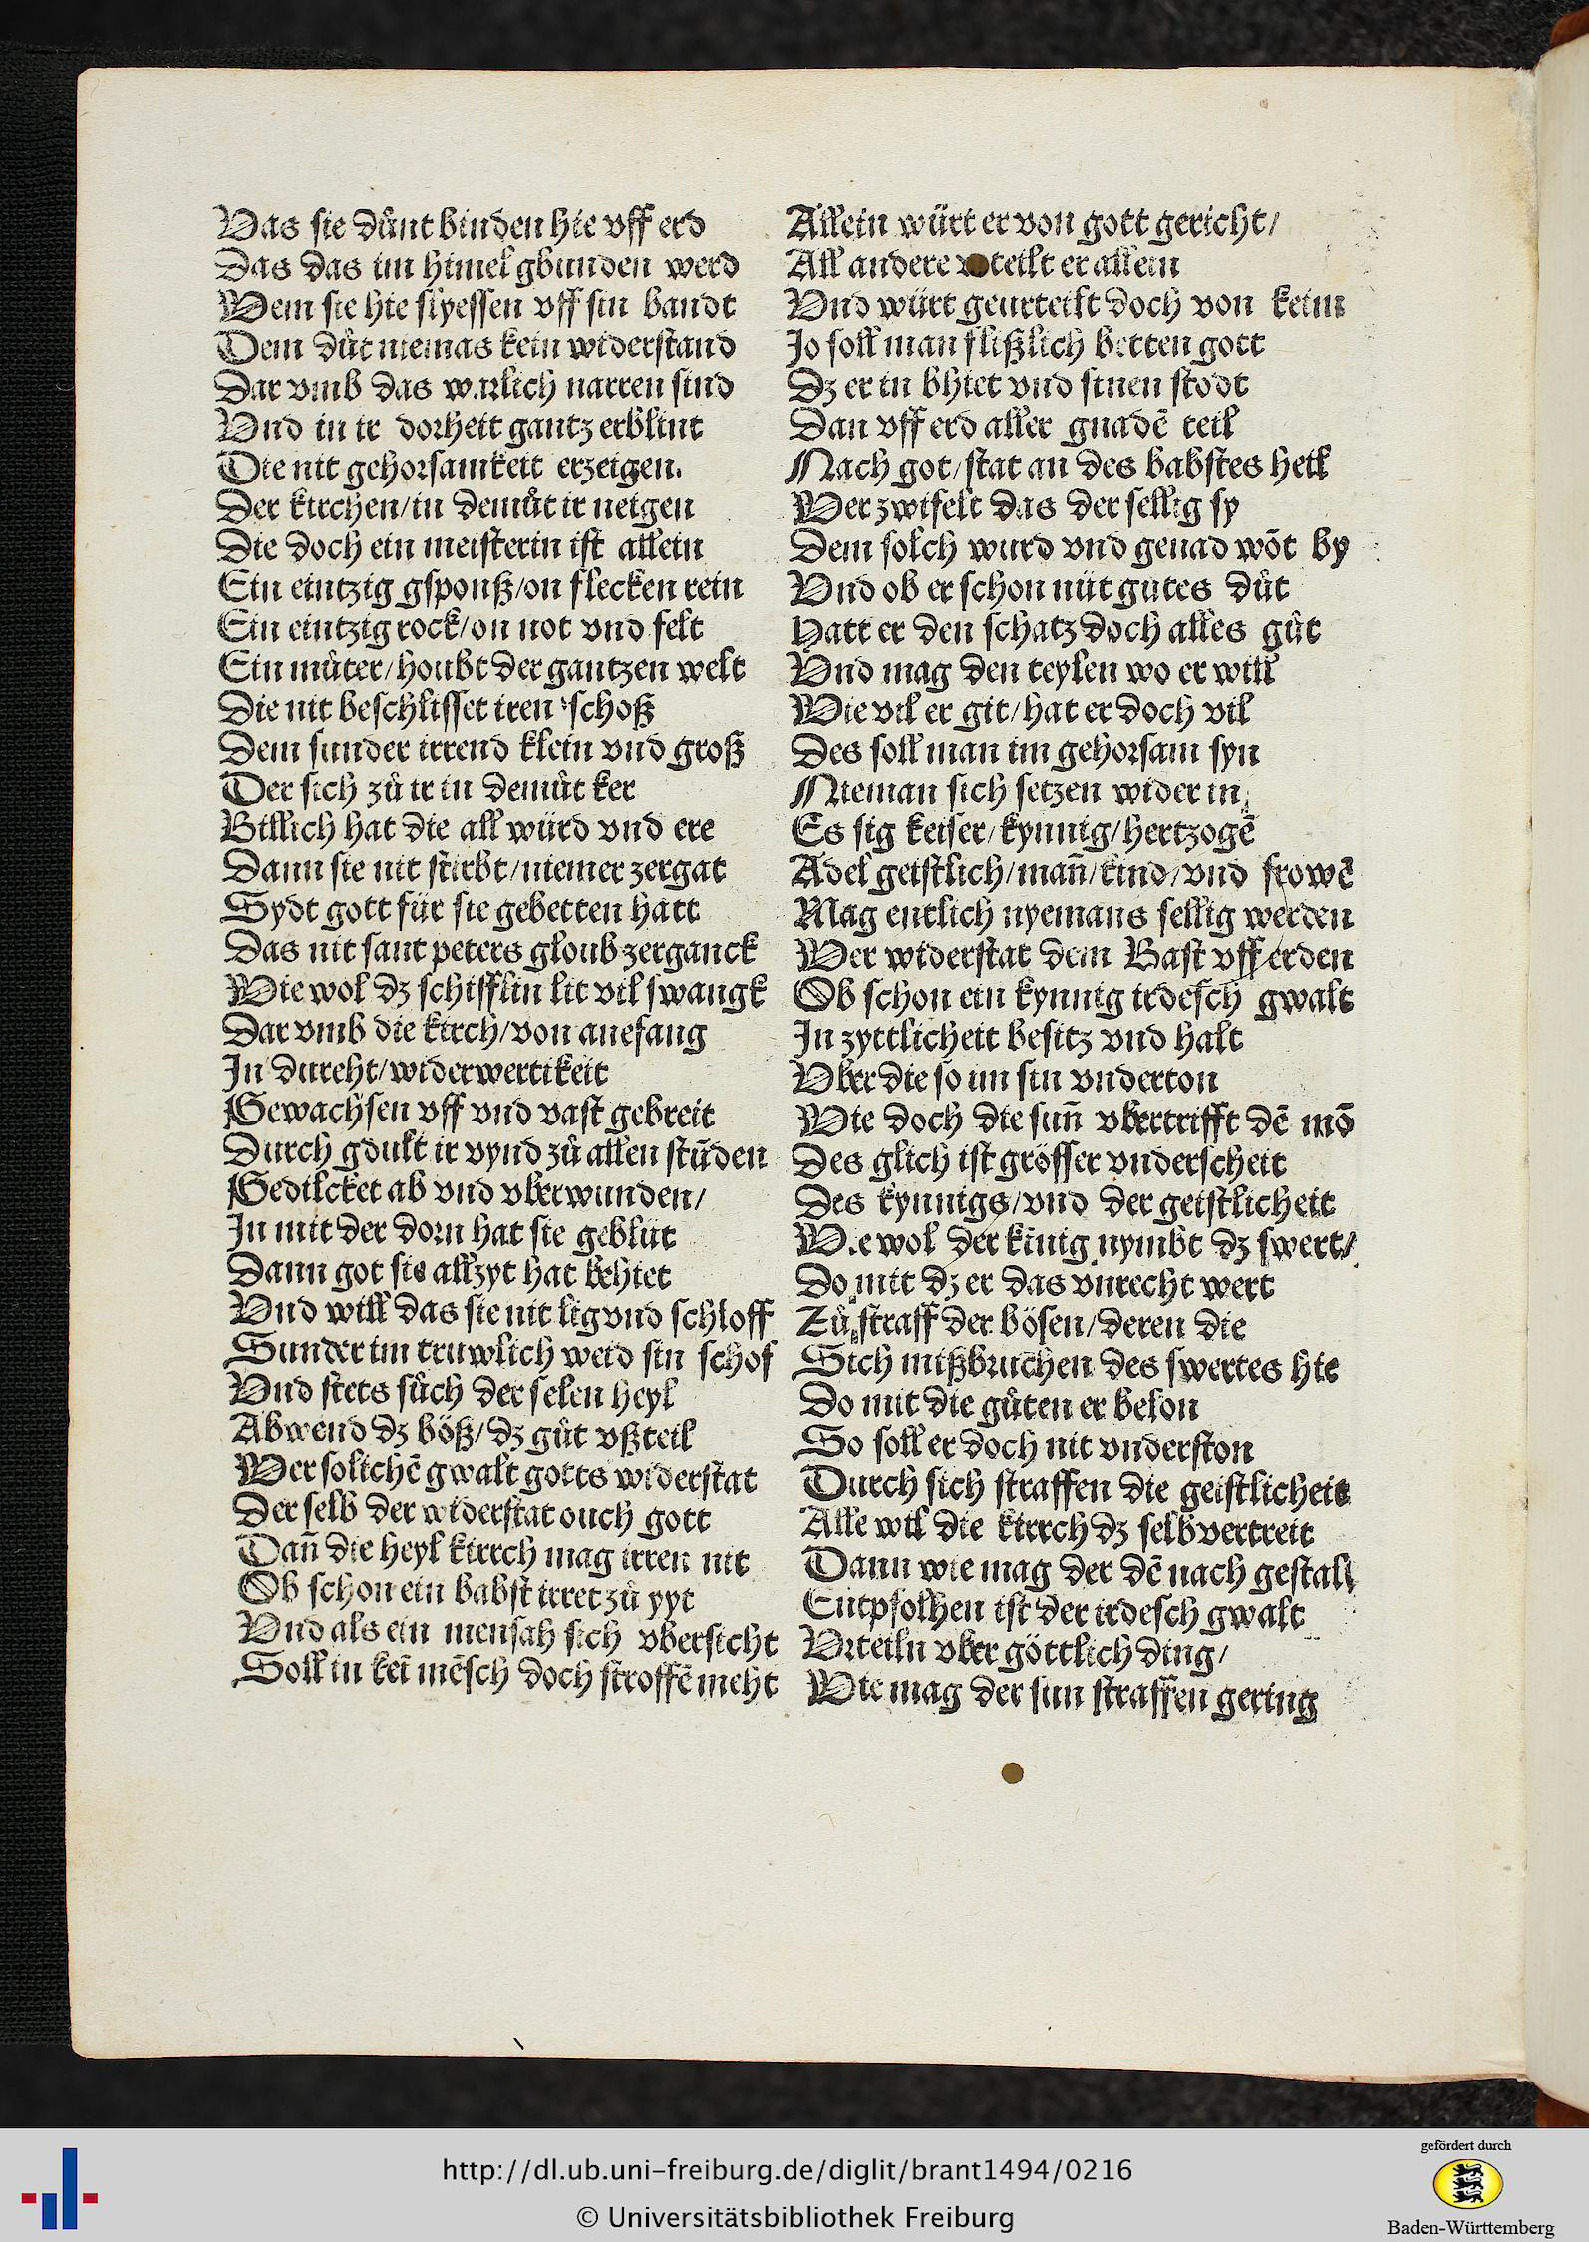 Was sie důnt binden hie vff erd
Das das im himel gbunden werd
Wem sie hie slyessen vff sin bandt
Dem důt niemas kein widerstand
Dar vmb das warlich narren sind
Vnd in ir dorheit gantz erblint
Die nit gehorsamkeit erzeigen.
Der kirchen/in demůt ir neigen
Die doch ein meisterin ist allein
Ein eintzig gsponß/on flecken rein
Ein eintzig rock/on not vnd felt
Ein můter/houbt der gantzen welt
Die nit beschlisset iren schoß
Dem sunder irrend klein vnd groß
Der sich zů ir in demůt ker
Billich hat die all würd vnd ere
Dann sie nit stirbt/niemer zergat
Sydt gott für sie gebetten hatt
Das nit sant peters gloub zerganck
Wie wol dz schifflin lit vil swangk
Dar vmb die kirch/von anefang
In dureht/widerwertikeit
Gewachsen vff vnd vast gebreit
Durch gdult ir vynd zů allen stūden
Gedilcket ab vnd vberwunden/
In mit der dorn hat sie geblüt
Dann got sie allzyt hat behiet
Vnd will das sie nit lig vnd schloff
Sunder im truwlich weid sin schof
Vnd stets sůch der selen heyl
Abwend dz böß/dz gůt vßteil
Wer solichē gwalt gotts widerstat
Der selb der widerstat ouch gott
Dañ die heyl kirrch mag irren nit
Ob schon ein babst irret zů yyt
Vnd als ein mensah sich vbersicht
Soll in kei mēsch doch stroffē meht
Allein würt er von gott gericht/
All andere teilt er allein
Vnd würt geurteilt doch von keim
Jo soll man flißlich betten gott
Dz er in bhiet vnd sinen stodt
Dan vff erd aller gnadē teil
Nach got/stat an des babstes heil
Wer zwifelt das der sellig sy
Dem solch wurd vnd genad wōt by
Vnd ob er schon nüt gutes důt
Hatt er den schatz doch alles gůt
Vnd mag den teylen wo er will
Wie vil er git/hat er doch vil
Des soll man im gehorsam syn
Nieman sich setzen wider in
Es sig keiser/kynnig/hertzogē
Adel geistlich/mañ/kind/vnd frowē
Mag entlich nyemans sellig werden
Wer widerstat dem Bast vff erden
Ob schon ein kynnig irdesch gwalt
In zyttlicheit besitz vnd halt
Vber die so im sin vnderton
Wie doch die suñ vbertrifft dē mō
Des glich ist grösser vnderscheit
Des kynnigs/vnd der geistlicheit
Wie wol der kinig nymbt dz swert/
Do mit dz er das vnrecht wert
Zů straff der bösen/deren die
Sich mißbruchen des swertes hie
Do mit die gůten er belon
So soll er doch nit vnderston
Durch sich straffen die geistlicheit
Alle wil die kirrch dz selb vertreit
Dann wie mag der dē nach gestalt
Entpfolhen ist der irdesch gwalt
Vrteiln vber göttlich ding/
Wie mag der sun straffen gering
http://dl.ub.uni-freiburg.de/diglit/brant1494/0216
© Universitätsbibliothek Freiburg
gefördert durch
Baden-Württemberg